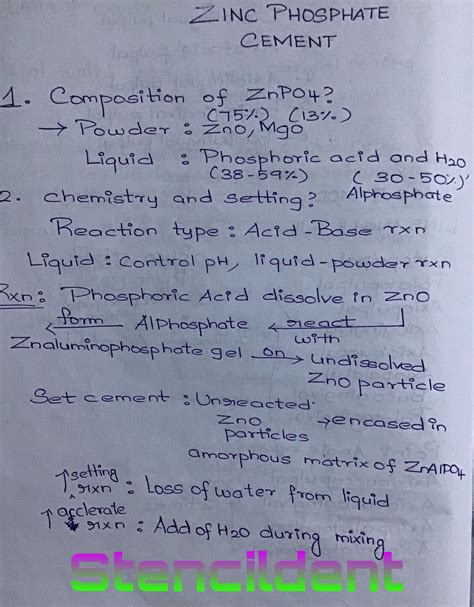 ZINC PHOSPHATE
CEMENT
1. Composition of ZnPO4?
(75%) (13%)
→ Powder : ZnO, MgO
Liquid : Phosphoric acid and H2O
(38-59%) (30-50%)
Alphosphate
2. chemistry and setting?
Reaction type : Acid-Base rxn
Liquid : Control pH, liquid-powder rxn
Rxn : Phosphoric Acid dissolve in ZnO
form AlPhosphate react with
Znaluminophosphate gel on → undissolved
ZnO particle
Set cement : Unreacted ZnO particles → encased in
amorphous matrix of ZnAlPO4
↑ setting rxn : Loss of water from liquid
↑ acclerate rxn : Add of H2O during mixing
Stencildent